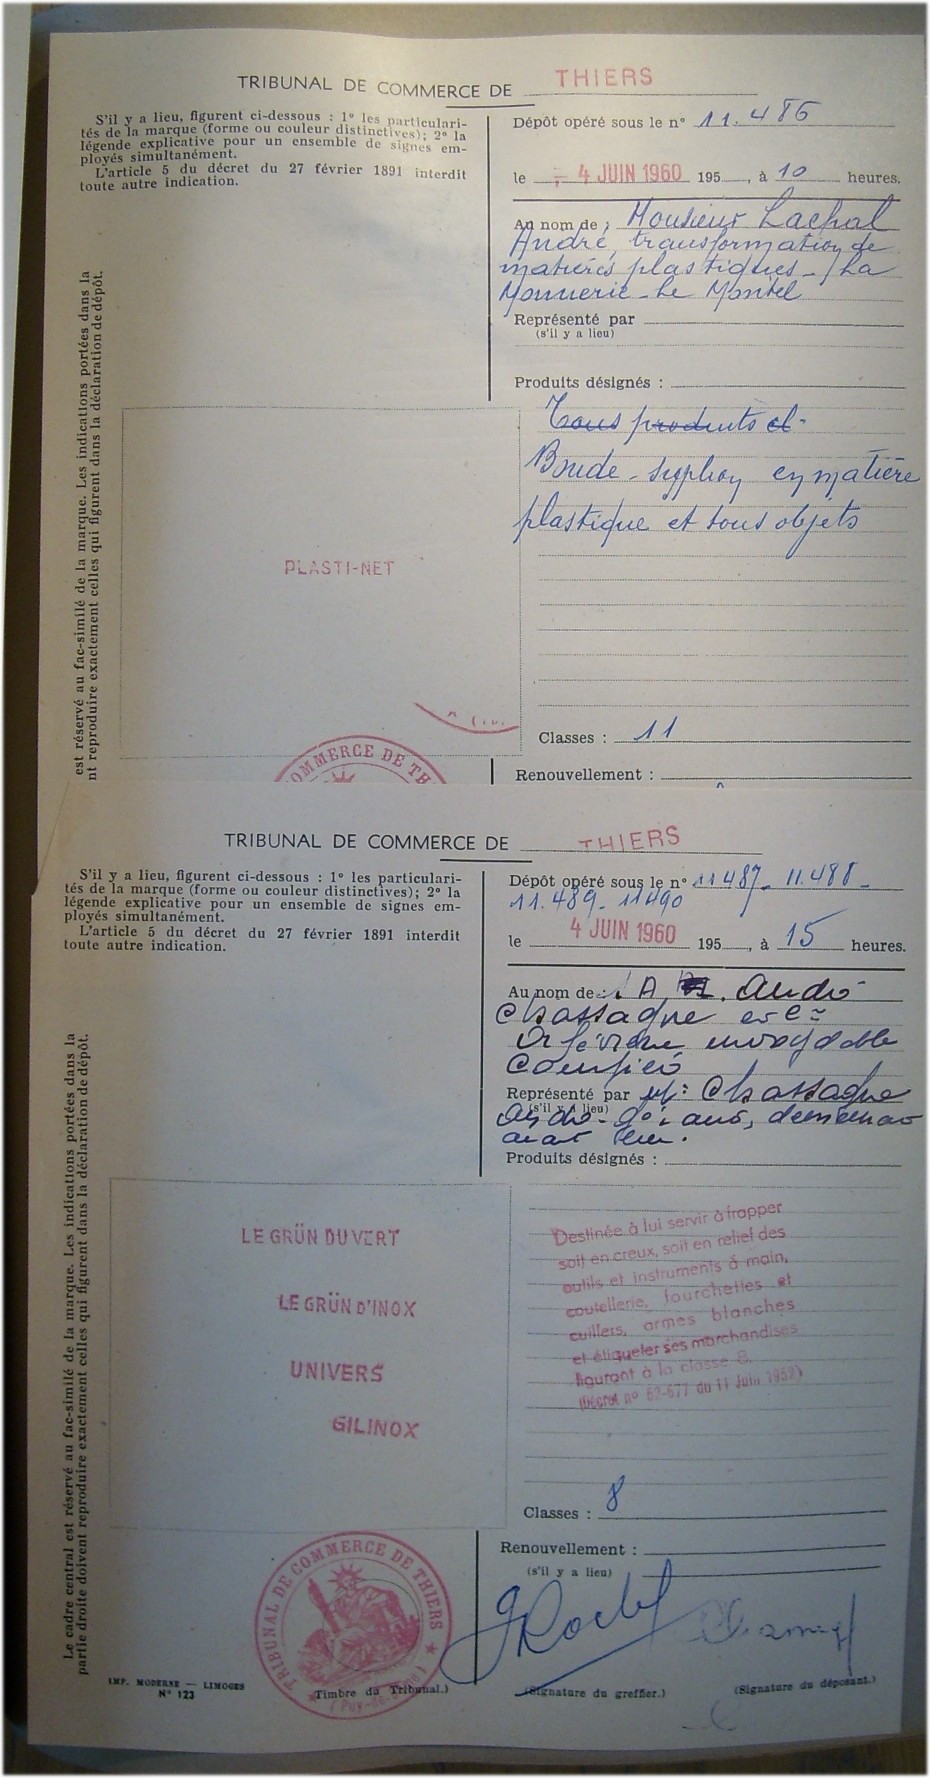 TRIBUNAL DE COMMERCE DE THIERS
S'il y a lieu, figurent ci-dessous : 1° les particulari-
tés de la marque (forme ou couleur distinctives); 2° la
légende explicative pour un ensemble de signes em-
ployés simultanément.
L'article 5 du décret du 27 février 1891 interdit
toute autre indication.
Dépôt opéré sous le n° 11.486
le 4 JUIN 1960 195 , à 10 heures.
Au nom de : Monsieur Lachal
André, transformation de
matières plastiques - La
Monnerie - Le Montel
Représenté par
(s'il y a lieu)
Produits désignés :
Tous produits et
Bonde - syphon en matière
plastique et tous objets
est réservé au fac-similé de la marque. Les indications portées dans la
nt reproduire exactement celles qui figurent dans la déclaration de dépôt.
PLASTI-NET
Classes : 11
OMMERCE DE TH
Renouvellement :
TRIBUNAL DE COMMERCE DE THIERS
S'il y a lieu, figurent ci-dessous : 1° les particulari-
tés de la marque (forme ou couleur distinctives); 2° la
légende explicative pour un ensemble de signes em-
ployés simultanément.
L'article 5 du décret du 27 février 1891 interdit
toute autre indication.
Dépôt opéré sous le n° 11487 - 11.488 -
11.489 - 11490
le 4 JUIN 1960 195 , à 15 heures.
Au nom de : André
Chassagne
Orfèvrerie inoxydable
Représenté par Mr Chassagne
(s'il y a lieu)
Produits désignés :
Le cadre central est réservé au fac-similé de la marque. Les indications portées dans la
partie droite doivent reproduire exactement celles qui figurent dans la déclaration de dépôt.
LE GRÜN DUVERT
LE GRÜN D'INOX
UNIVERS
GILINOX
Destinée à lui servir à frapper
soit en creux, soit en relief des
outils et instruments à main,
coutellerie, fourchettes et
cuillers, armes blanches
et étiqueter ses marchandises
figurant à la classe 8.
(Décret n° 52-677 du 11 Juin 1952)
Classes : 8
Renouvellement :
(s'il y a lieu)
TRIBUNAL DE COMMERCE DE THIERS
(Puy-de-Dôme)
IMP. MODERNE — LIMOGES
N° 123
Timbre du Tribunal.)
(Signature du greffier.)
(Signature du déposant.)